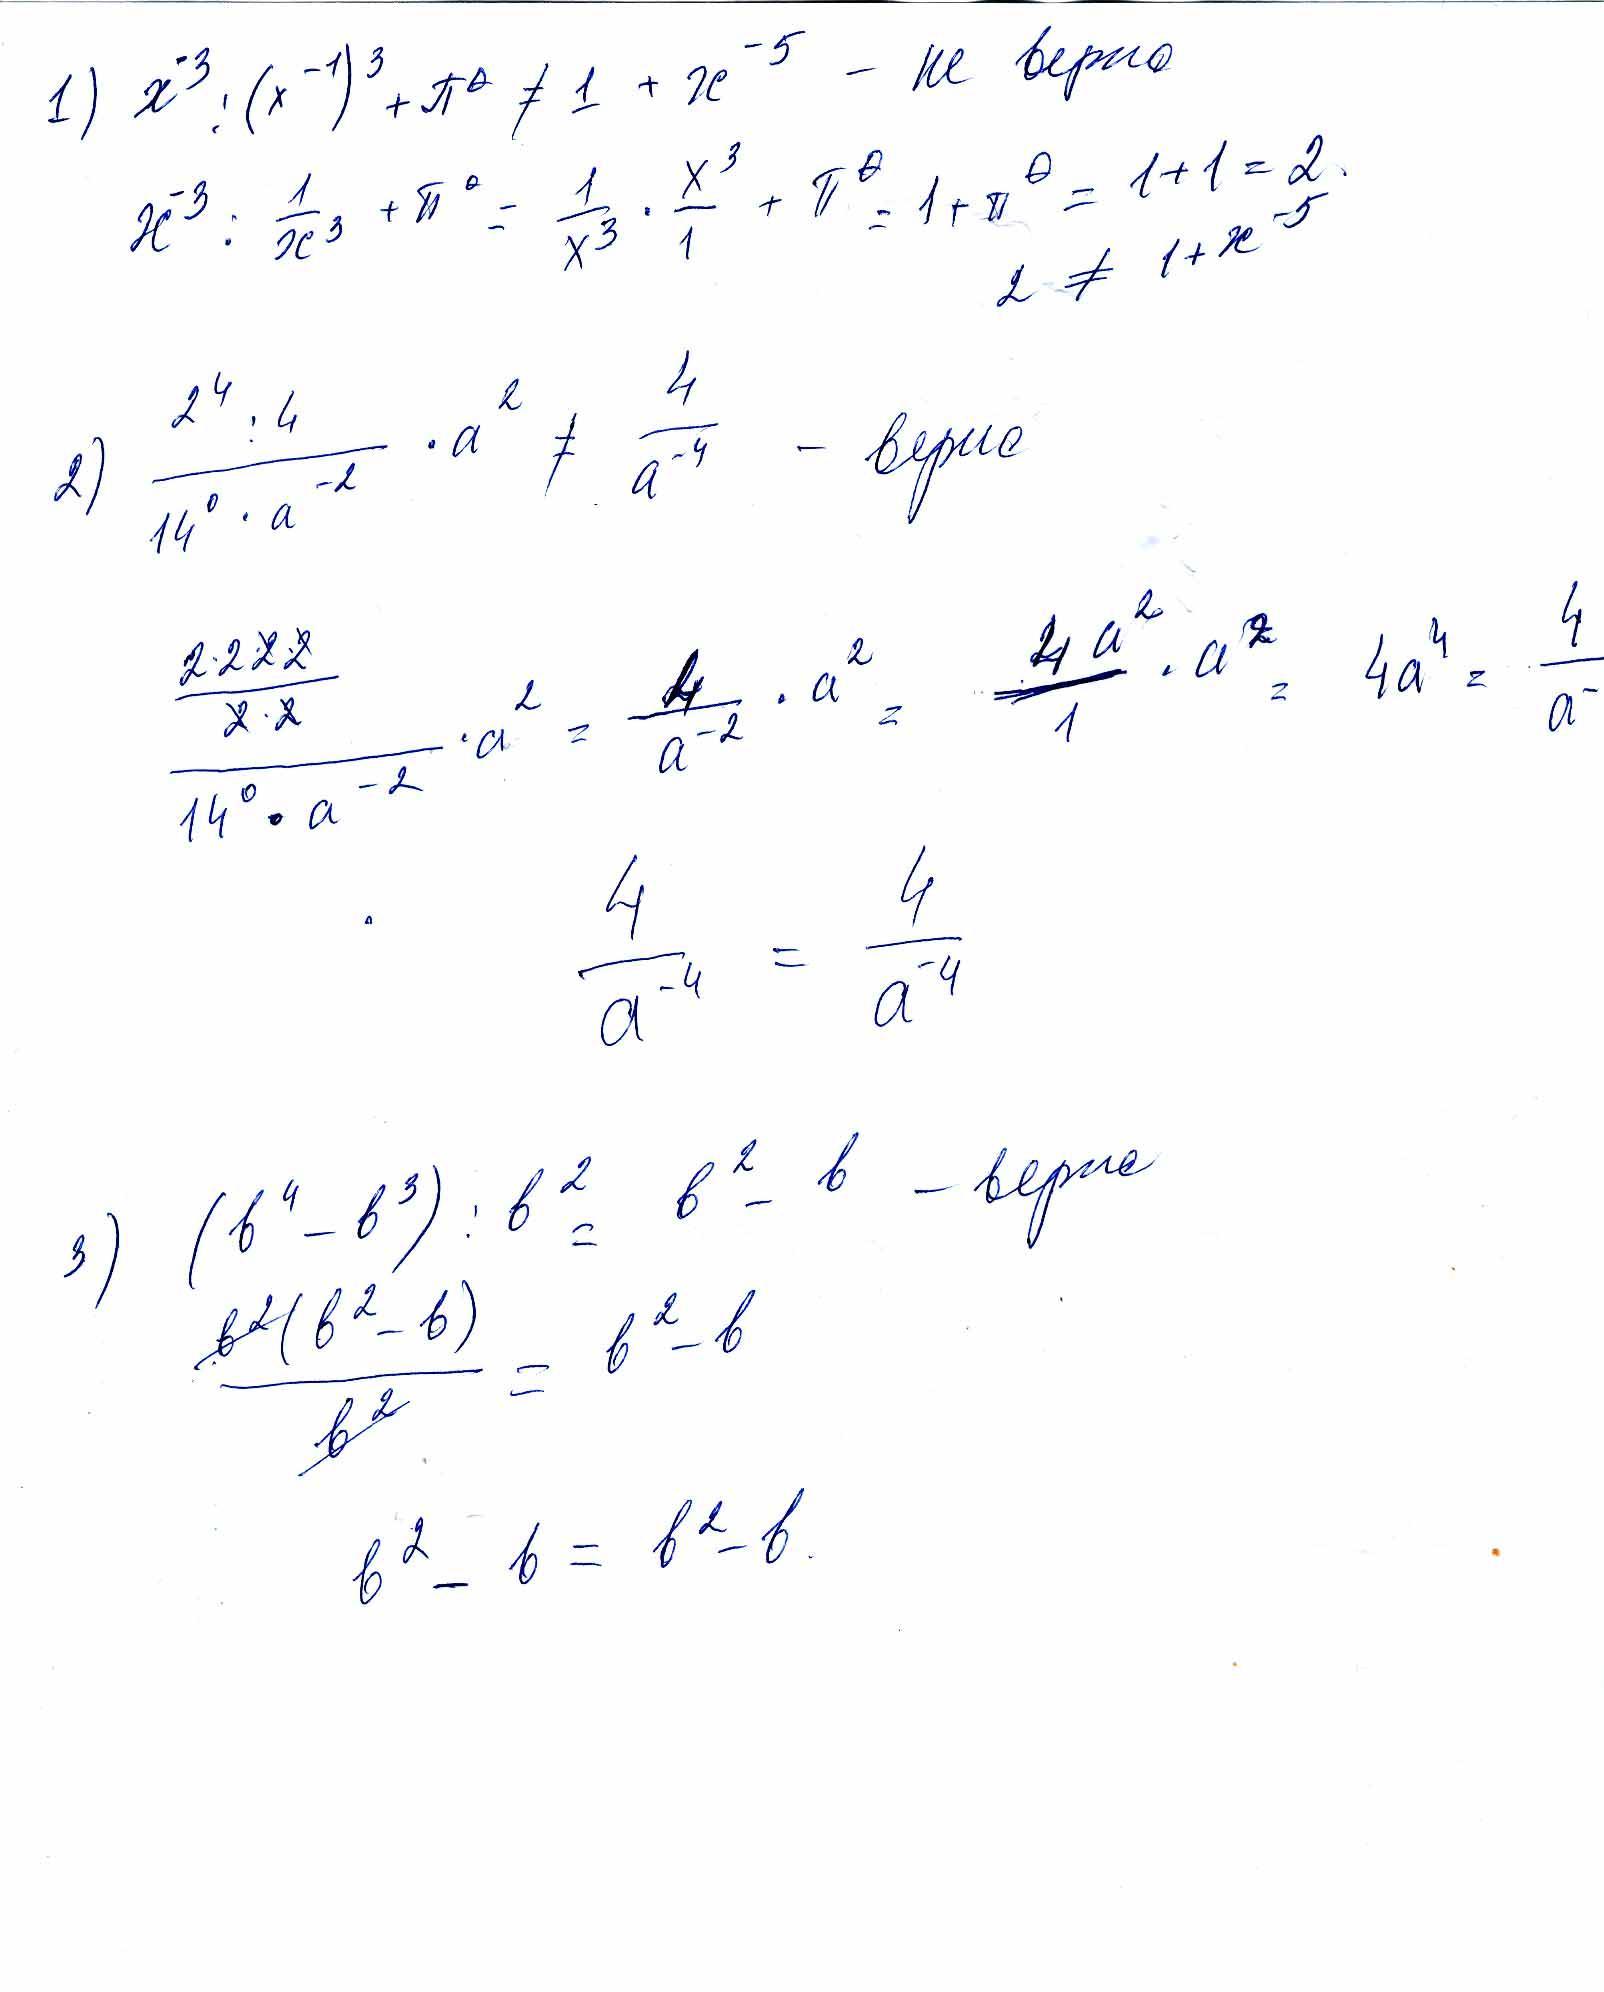 1) x⁻³ : (x⁻¹)³ + π⁰ ≠ 1 + x⁻⁵ – не верно
x⁻³ : 1/x³ + π⁰ = 1/x³ · x³/1 + π⁰ = 1 + π⁰ = 1 + 1 = 2.
2 ≠ 1 + x⁻⁵
2) (2⁴ : 4)/(14⁰ · a⁻²) · a² ≠ 4/a⁻⁴ – верно
((2·2·2·2)/(2·2))/(14⁰ · a⁻²) · a² = 4/a⁻² · a² = 4a²/1 · a² = 4a⁴ = 4/a⁻
4/a⁻⁴ = 4/a⁻⁴
3) (b⁴ – b³) : b² = b² – b – верно
b²(b² – b)/b² = b² – b
b² – b = b² – b.